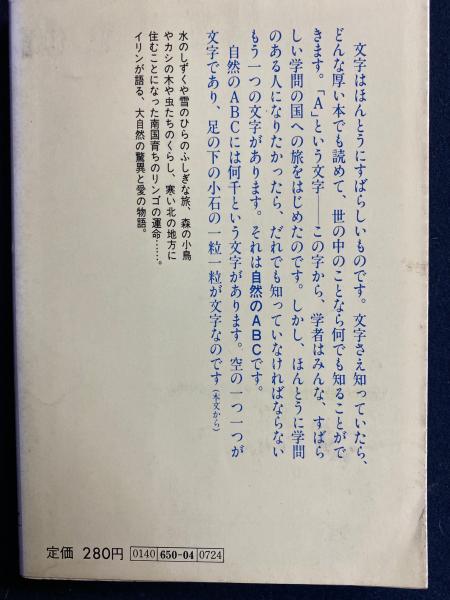 文字はほんとうにすばらしいものです。文字さえ知っていたら、
どんな厚い本でも読めて、世の中のことなら何でも知ることがで
きます。「A」という文字――この字から、学者はみんな、すばら
しい学問の国への旅をはじめたのです。しかし、ほんとうに学問
のある人になりたかったら、だれでも知っていなければならない
もう一つの文字があります。それは自然のABCです。
自然のABCには何千という文字があります。空の一つ一つが
文字であり、足の下の小石の一粒一粒が文字なのです(本文から)
水のしずくや雪のひらのふしぎな旅、森の小鳥
やカシの木や虫たちのくらし、寒い北の地方に
住むことになった南国育ちのリンゴの運命……。
イリンが語る、大自然の驚異と愛の物語。
定価 280円 0140 650-04 0724